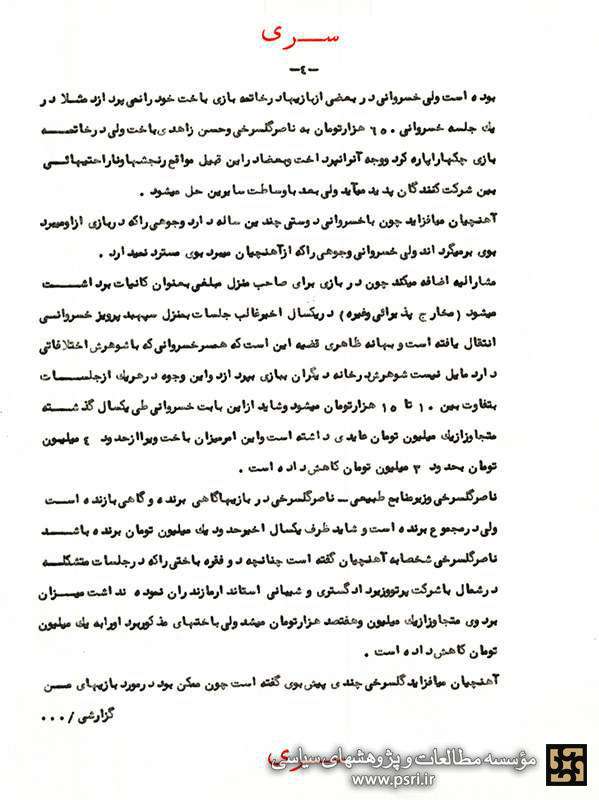 ســری
-٤-
بوده است ولی خسروانی در بعضی از بازیها در خاتمه بازی باخت خود را نمی پردازد مثلا در
یك جلسه خسروانی ٦٥٠ هزارتومان به ناصر گلسرخی و حسن زاهدی باخت ولی در خاتمــه
بازی چکها را پاره کرد و وجه آنرا نپرداخت و بعضا در این قبیل مواقع رنجشها و ناراحتیهــائی
بین شرکت کنندگان پدید میآید ولی بعد با وساطت سایرین حل میشود .
آهنچیان میافزاید چون با خسروانی دوستی چندین ساله دارد وجوهی را که در بازی از او میبرد
بوی برمیگرداند ولی خسروانی وجوهی را که از آهنچیان میبرد بوی مسترد نمیدارد .
مشارالیه اضافه میکند چون در بازی برای صاحب منزل مبلغی بعنوان کانیات برداشــــت
میشود (مخارج پذیرائی وغیره) در یکسال اخیر غالب جلسات بمنزل سپهبد پرویز خسروانــی
انتقال یافته است و بهانه ظاهری قضیه این است که همسر خسروانی که با شوهرش اختلافاتی
دارد مایل نیست شوهرش در خانه دیگران ببازی بپردازد و این وجوه در هر یك از جلســـات
بتفاوت بین ١٠ تا ١٥ هزارتومان میشود و شاید از این بابت خسروانی طی یکسال گذشــته
متجاوز از یك میلیون تومان عایدی داشته است و این امر میزان باخت ویرا از حدود ٤ میلیون
تومان بحدود ٣ میلیون تومان کاهش داده است .
ناصر گلسرخی وزیر منابع طبیعی - ناصر گلسرخی در بازیها گاهی برنده و گاهی بازنده اســت
ولی در مجموع برنده است و شاید ظرف یکسال اخیر حدود یك میلیون تومان برنده باشـــد
ناصر گلسرخی شخصا به آهنچیان گفته است چنانچه دو فقره باختی را که در جلسات متشکلــه
در شمال با شرکت پرتو وزیر دادگستری و شیبانی استاندار مازندران نموده نداشت میــزان
برد وی متجاوز از یك میلیون و هفتصد هزارتومان میشد ولی باختهای مذکور برد او را به یك میلیون
تومان کاهش داده است .
آهنچیان میافزاید گلسرخی چندی پیش بوی گفته است چون ممکن بود در مورد بازیهای مــن
گزارشی /٠٠٠
ســری
مؤسسه مطالعات و پژوهشهای سیاسی
www.psri.ir